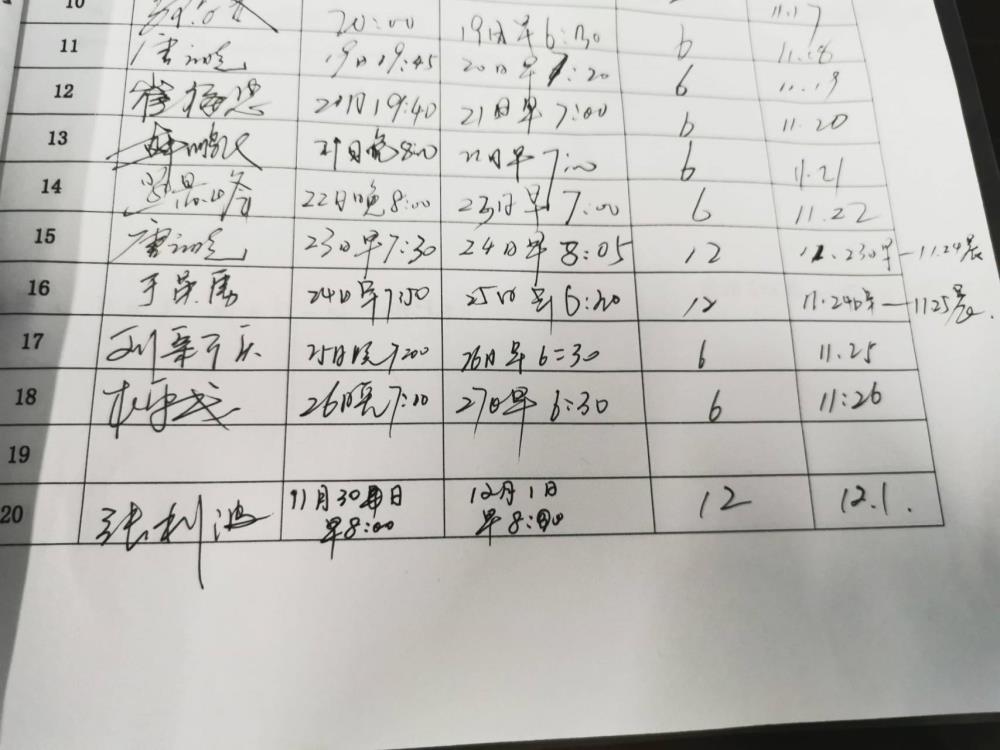 11.17
10 20:00 19日早6:30 6 11.18
11 19日19:45 20日早7:20 6 11.19
12 20日19:40 21日早7:00 6 11.20
13 21日晚8:00 22日早7:00 6 11.21
14 22日晚8:00 23日早7:00 6 11.22
15 23日早7:30 24日早8:05 12 11.23日早—11.24晨
16 24日早7:50 25日早6:20 12 11.24日早—11.25晨.
17 25日晚7:00 26日早6:30 6 11.25
18 26日晚7:00 27日早6:30 6 11:26
19
20 张利波 11月30日早8:00 12月1日早8:00 12 12.1.